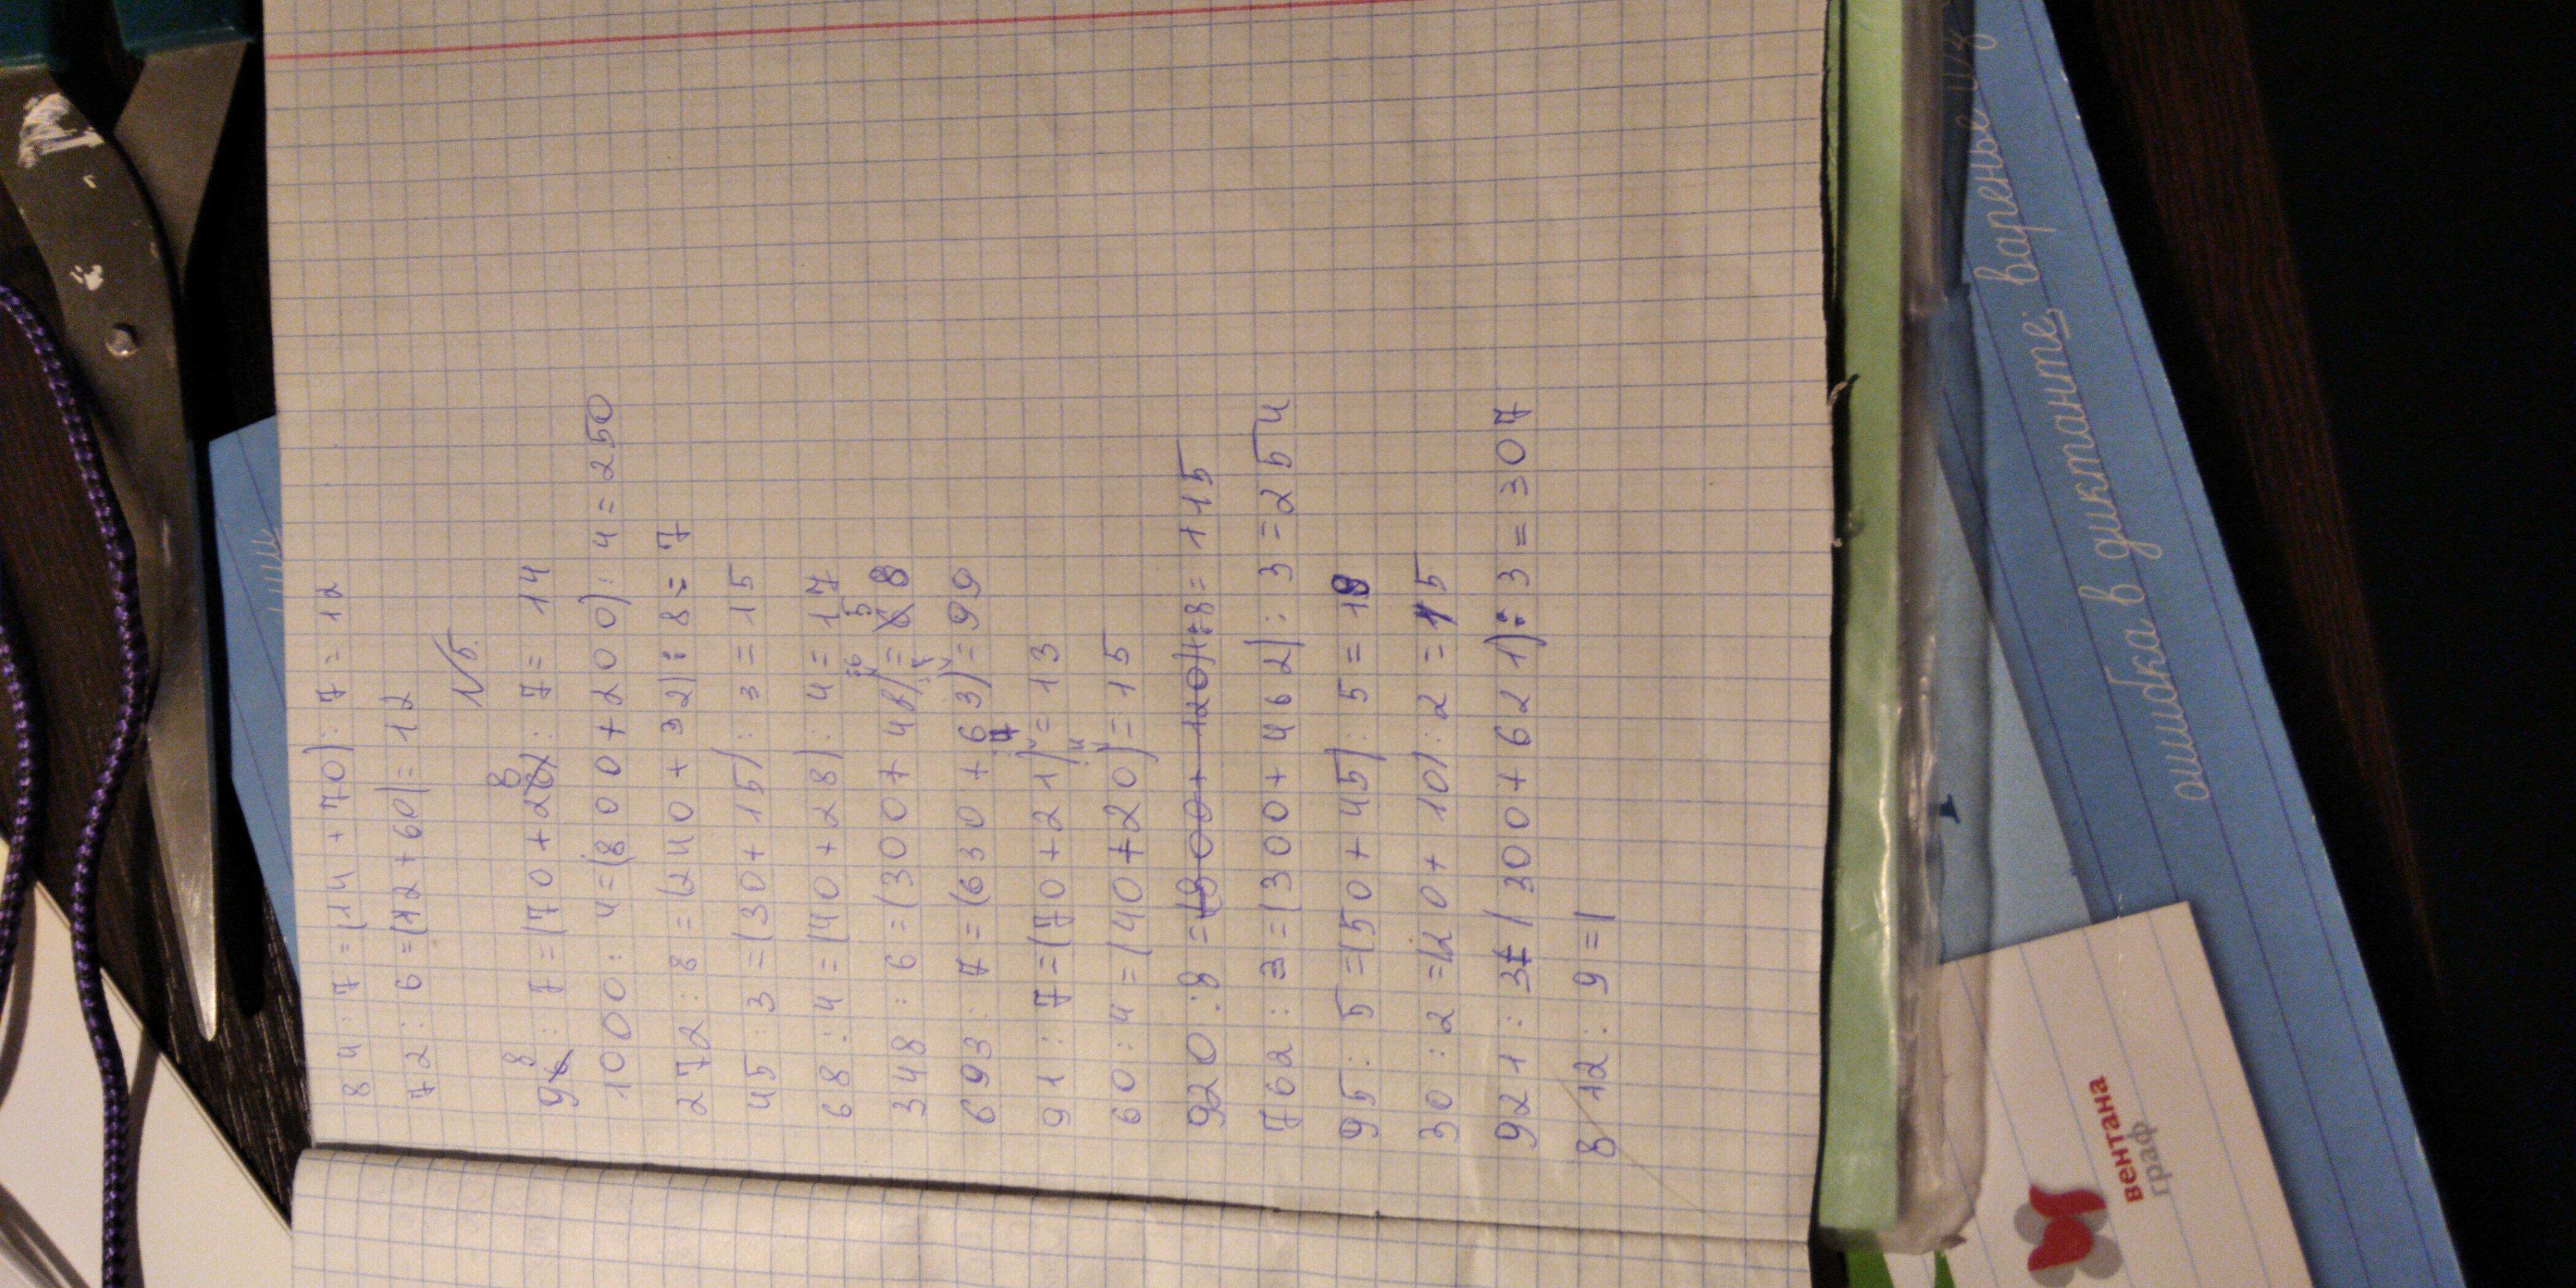 84 : 7 = (14 + 70) : 7 = 12
72 : 6 = (12 + 60) = 12
№5.
98 : 7 = (70 + 28) : 7 = 14
1000 : 4 = (800 + 200) : 4 = 250
272 : 8 = (240 + 32) : 8 = 7
45 : 3 = (30 + 15) : 3 = 15
68 : 4 = (40 + 28) : 4 = 17
348 : 6 = (300 + 48) : 6 = 58
693 : 7 = (630 + 63) : 7 = 99
91 : 7 = (70 + 21) : 7 = 13
60 : 4 = (40 + 20) : 4 = 15
920 : 8 = (800 + 120) : 8 = 115
762 : 3 = (300 + 462) : 3 = 254
95 : 5 = (50 + 45) : 5 = 19
30 : 2 = (20 + 10) : 2 = 15
921 : 3 = (300 + 621) : 3 = 307
812 : 9 = (
ошибка в диктанте.
варенье из
вентана
граф